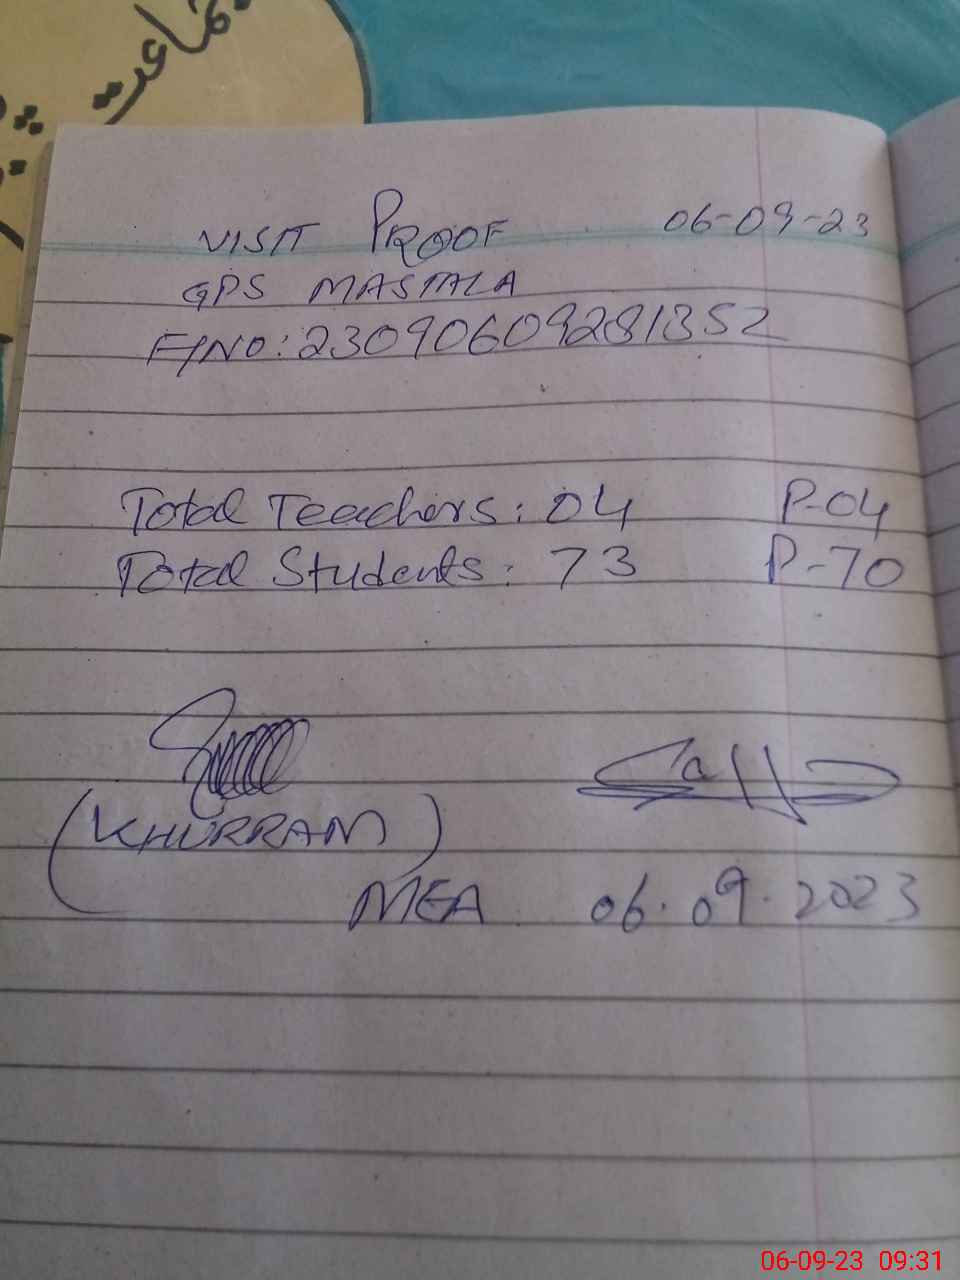 جماعت
VISIT PROOF 06-09-23
GPS MASTALA
F/NO: 23090609281352
Total Teachers: 04 P-04
Total Students: 73 P-70
(KHURRAM)
MEA 06.09.2023
06-09-23 09:31